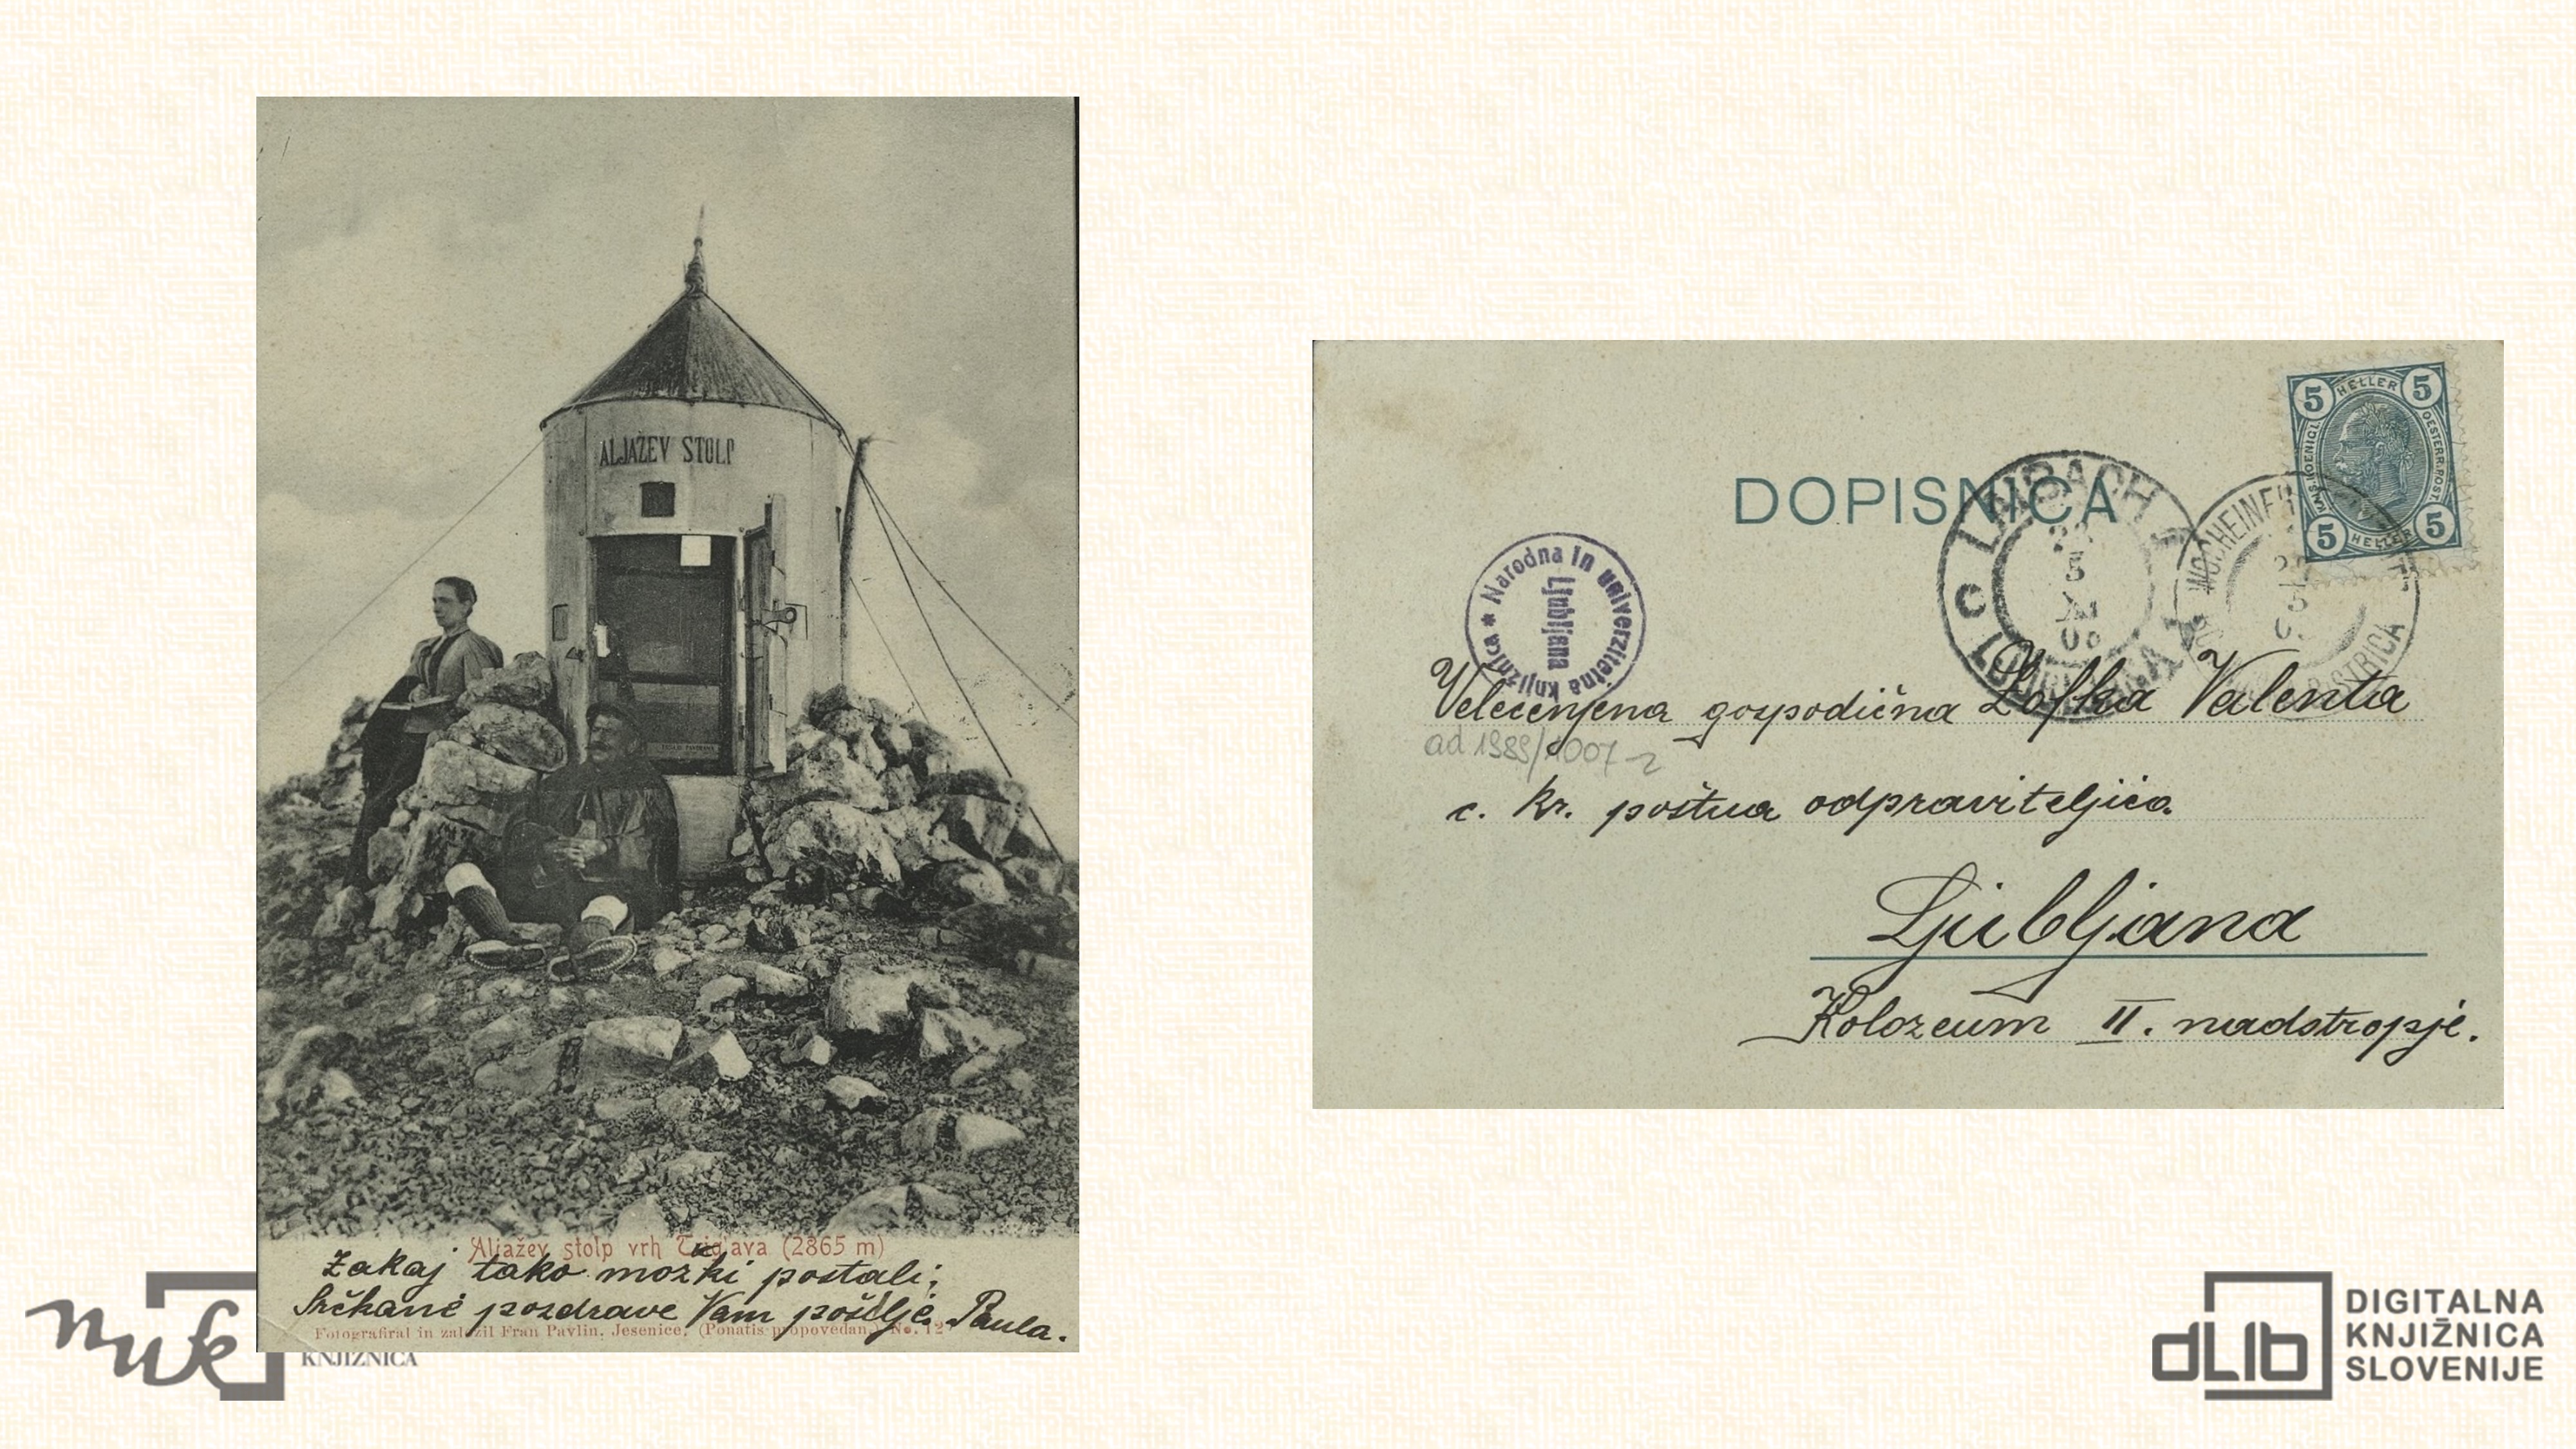 ALJAŽEV STOLP
Aljažev stolp vrh Triglava (2865 m)
Zakaj tako možki postali;
Srčkane pozdrave Vam pošilje Paula.
Fotografiral in založil Fran Pavlin, Jesenice. (Ponatis prepovedan.) No. 12
nuk
KNJIŽNICA
DOPISNICA
5 HELLER 5
OESTERR. POST.
5 HELLER 5
LAIBACH
5
XI
WOCHEINER
Narodna in univerzitetna knjižnica
Ljubljana
Velecenjena gospodična Zofka Valenta
ad 1989/1007
c. kr. poštna odpraviteljica
Ljubljana
Kolozeum II. nadstropje.
dLib
DIGITALNA
KNJIŽNICA
SLOVENIJE